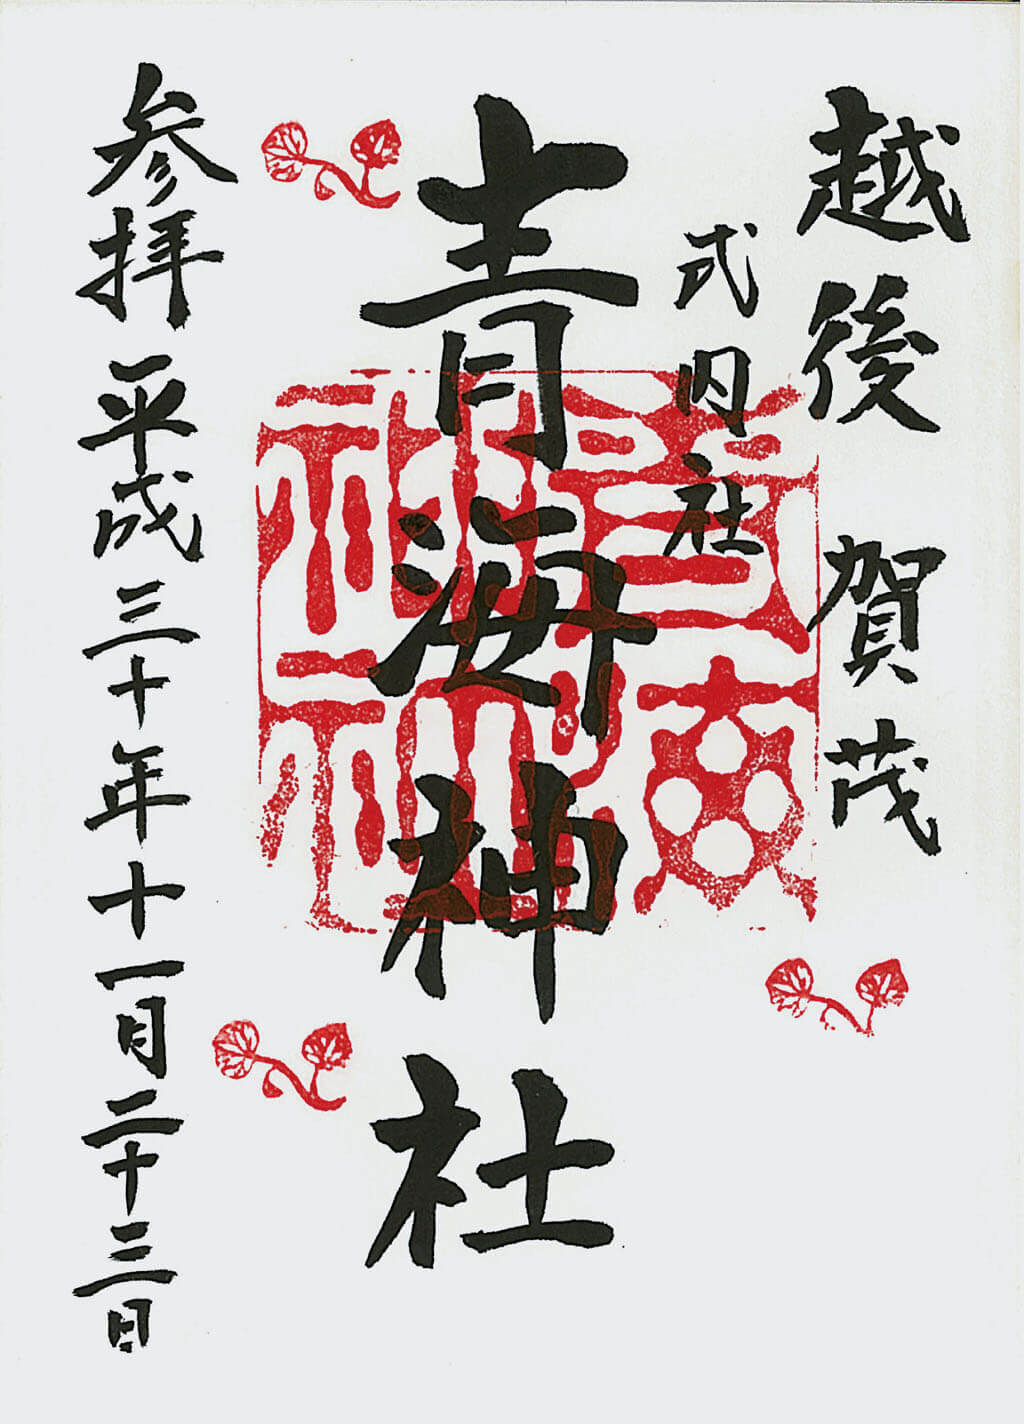 越後 賀茂
式内社
青海神社
参拝 平成三十年十一月二十三日